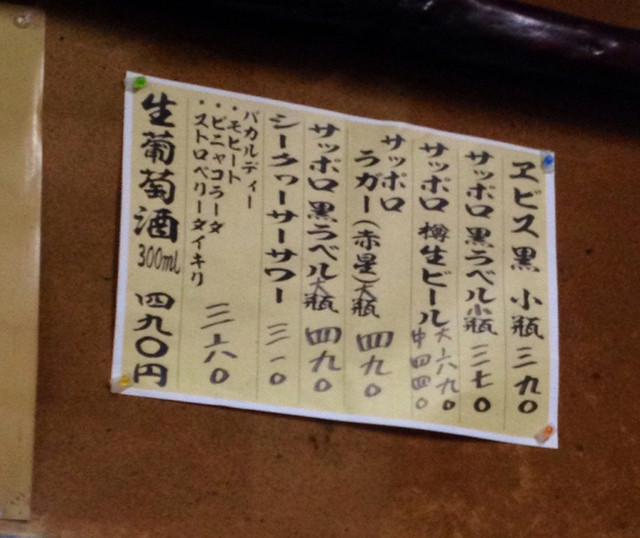 ヱビス 黒 小瓶 三九〇
サッポロ 黒ラベル 小瓶 三七〇
サッポロ 樽生ビール 大 六九〇
中 四四〇
サッポロ
ラガー(赤星)大瓶 四九〇
サッポロ 黒ラベル 大瓶 四九〇
シークワーサーサワー 三一〇
バカルディー
・モヒート
・ピニャコラーダ
・ストロベリーダイキリ
三六〇
生葡萄酒 300ml 四九〇円